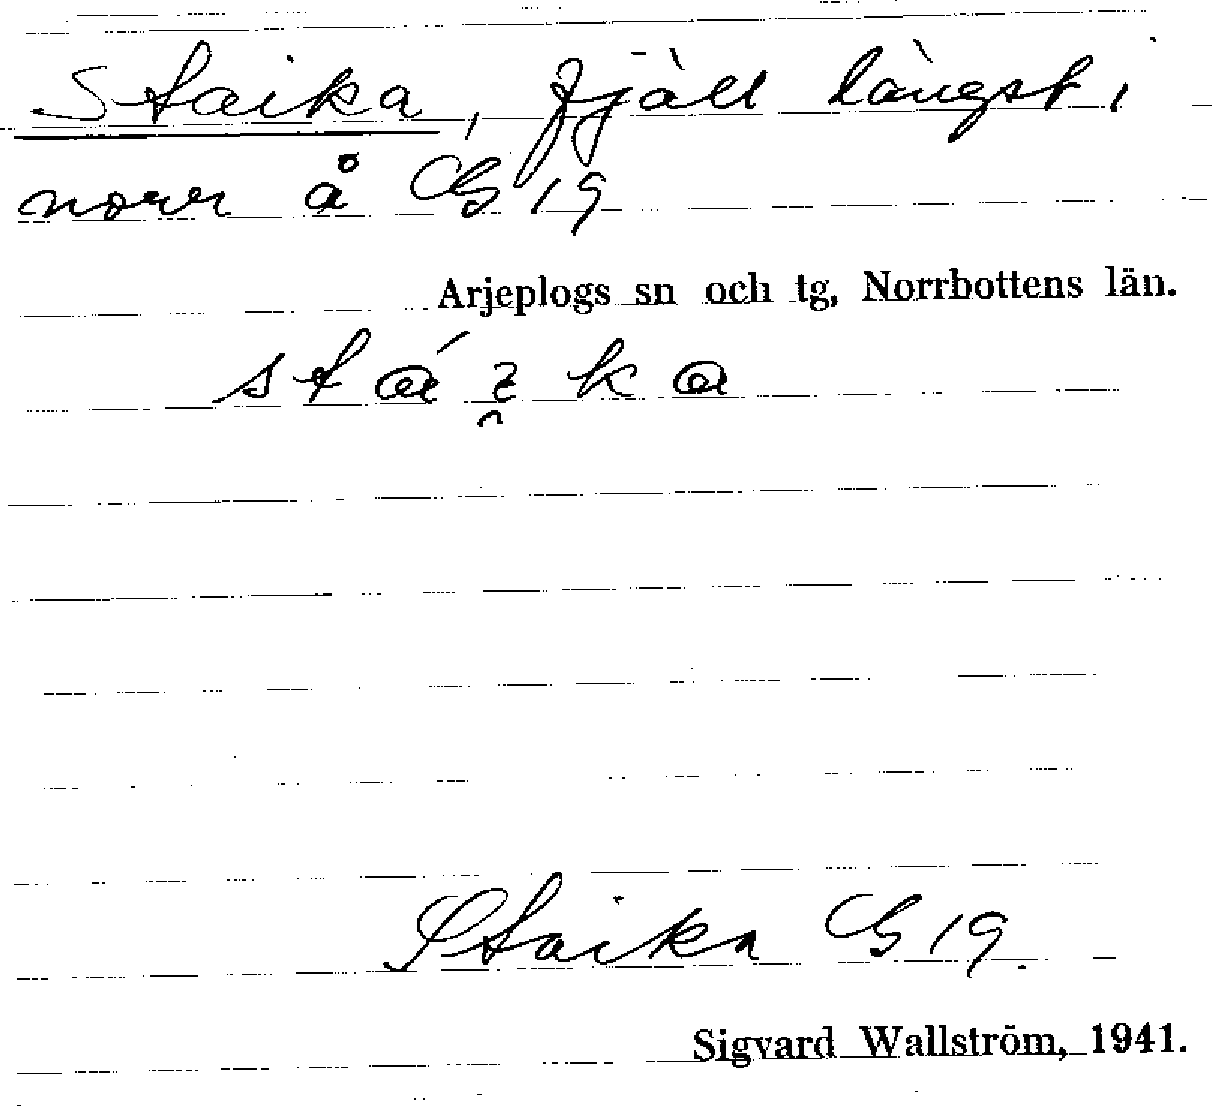 Staika, fjäll längst i
norr å G 19
Arjeplogs sn och tg, Norrbottens län.
Staika G 19.
Sigvard Wallström, 1941.